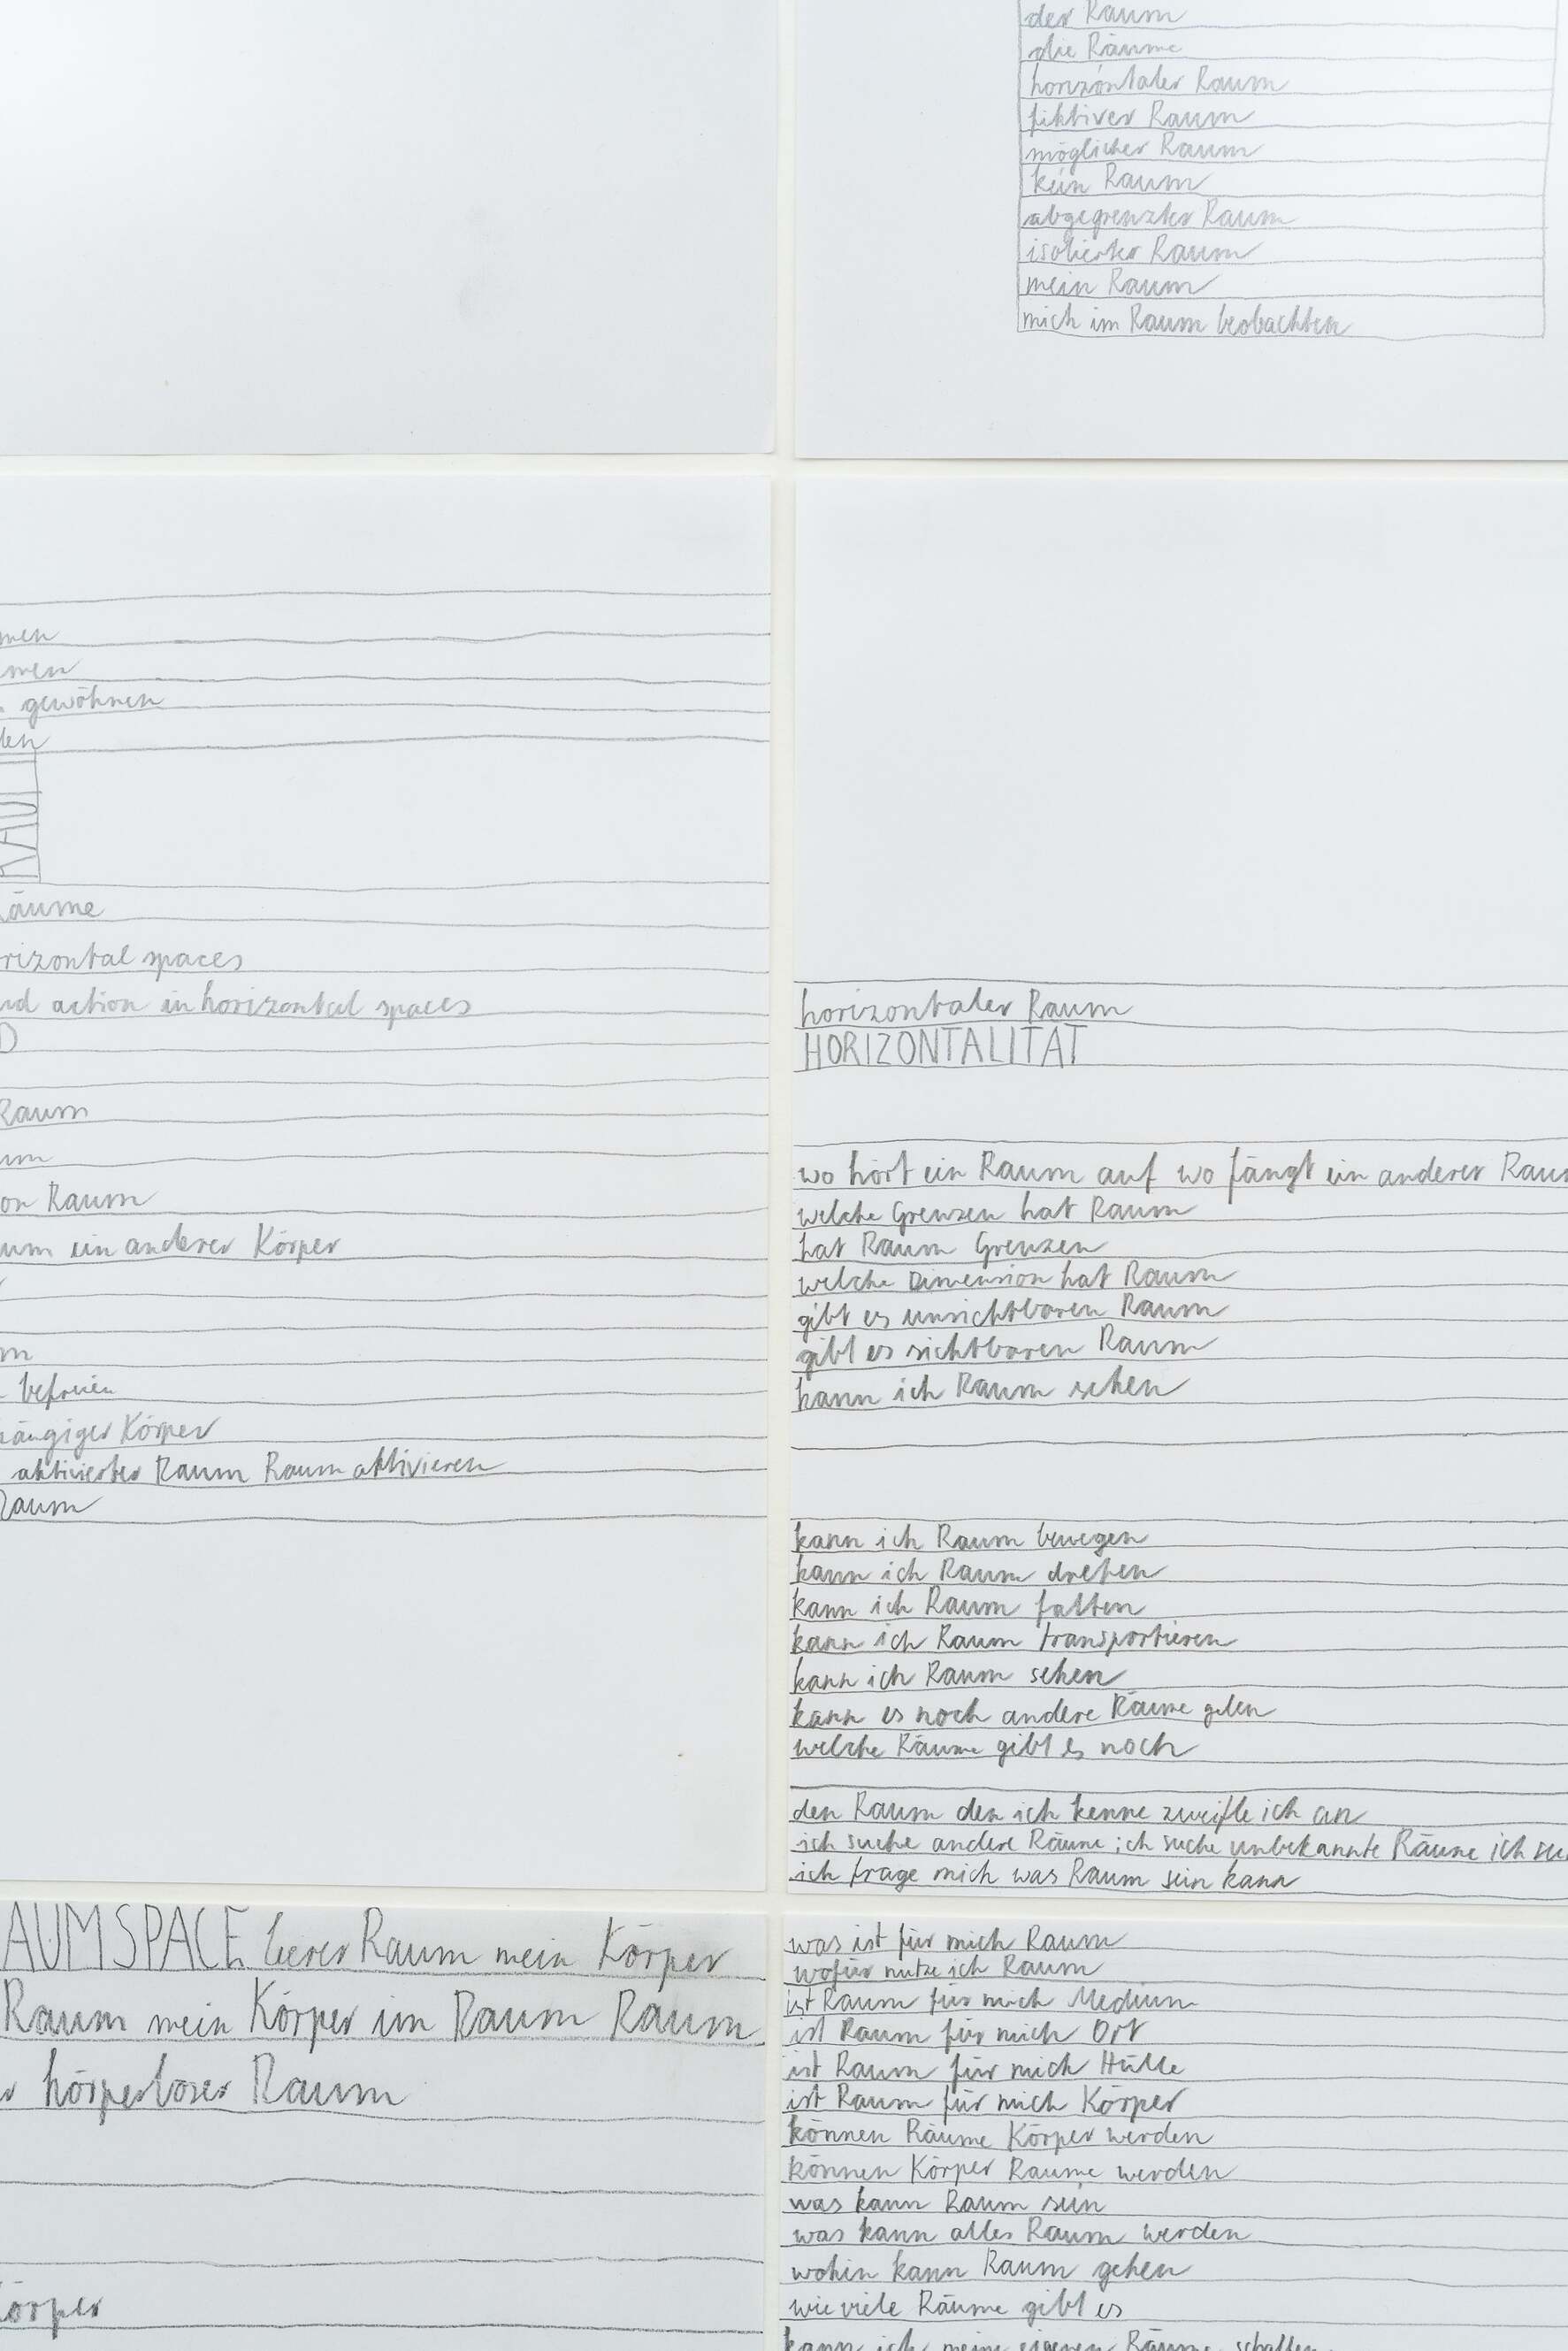 der Raum
die Räume
horizontaler Raum
fiktiver Raum
möglicher Raum
kein Raum
abgegrenzter Raum
isolierter Raum
mein Raum
mich im Raum beobachten
men
men
gewöhnen
den
RAU
äume
rizontal spaces
nd action in horizontal spaces
D
Raum
um
on Raum
um ein anderer Körper
m
befreien
hängiger Körper
aktivierter Raum Raum aktivieren
Raum
horizontaler Raum
HORIZONTALITÄT
wo hört ein Raum auf wo fängt ein anderer Raum
welche Grenzen hat Raum
hat Raum Grenzen
welche Dimension hat Raum
gibt es unsichtbaren Raum
gibt es sichtbaren Raum
kann ich Raum sehen
kann ich Raum bewegen
kann ich Raum drehen
kann ich Raum falten
kann ich Raum transportieren
kann ich Raum sehen
kann es noch andere Räume geben
welche Räume gibt es noch
den Raum den ich kenne zweifle ich an
ich suche andere Räume ich suche unbekannte Räume ich su
ich frage mich was Raum sein kann
AUMSPACE leerer Raum mein Körper
Raum mein Körper im Raum Raum
r körperloser Raum
örper
was ist für mich Raum
wofür nutze ich Raum
ist Raum für mich Medium
ist Raum für mich Ort
ist Raum für mich Hülle
ist Raum für mich Körper
können Räume Körper werden
können Körper Räume werden
was kann Raum sein
was kann alles Raum werden
wohin kann Raum gehen
wie viele Räume gibt es
kann ich meine eigenen Räume schaffen